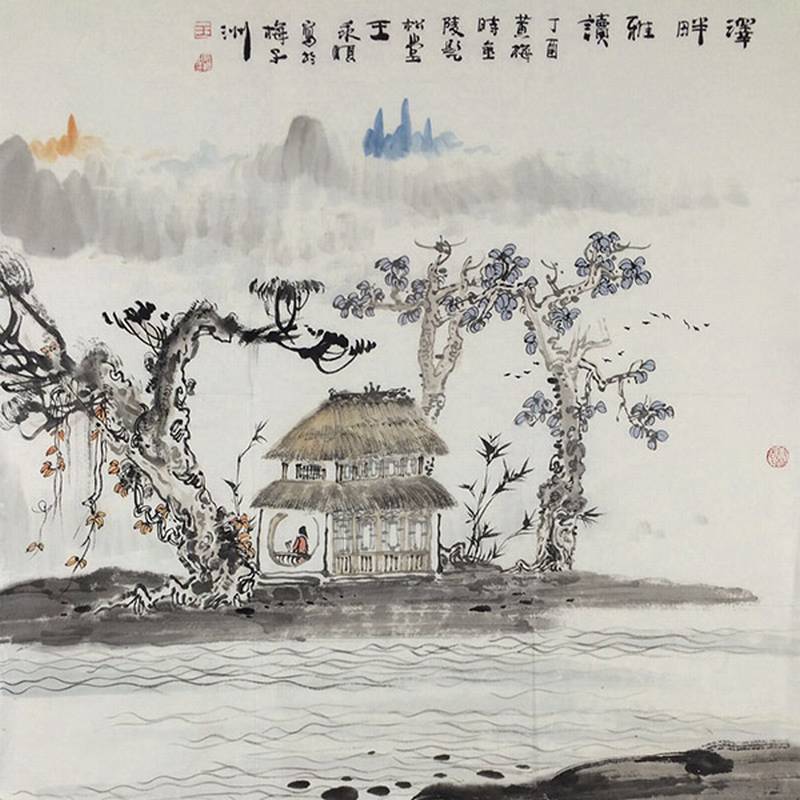 澤畔雅讀
丁酉
黃梅
時金
陵
松堂
王
永順
寫於
梅子
洲